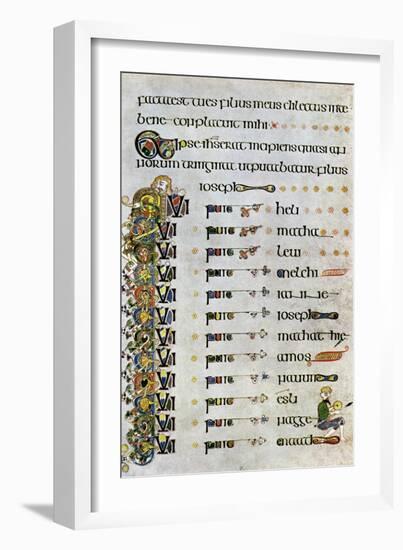 facta est tu es filius meus dilectus in te
bene conplacuit mihi
Et ipse ihs erat incipiens quasi an
norum triginta ut putabatur filius
ioseph
QUI fuit heli
QUI fuit matha
QUI fuit leui
QUI fuit melchi
QUI fuit iannae
QUI fuit ioseph
QUI fuit mathathie
QUI fuit amos
QUI fuit nauum
QUI fuit esli
QUI fuit nagge
QUI fuit